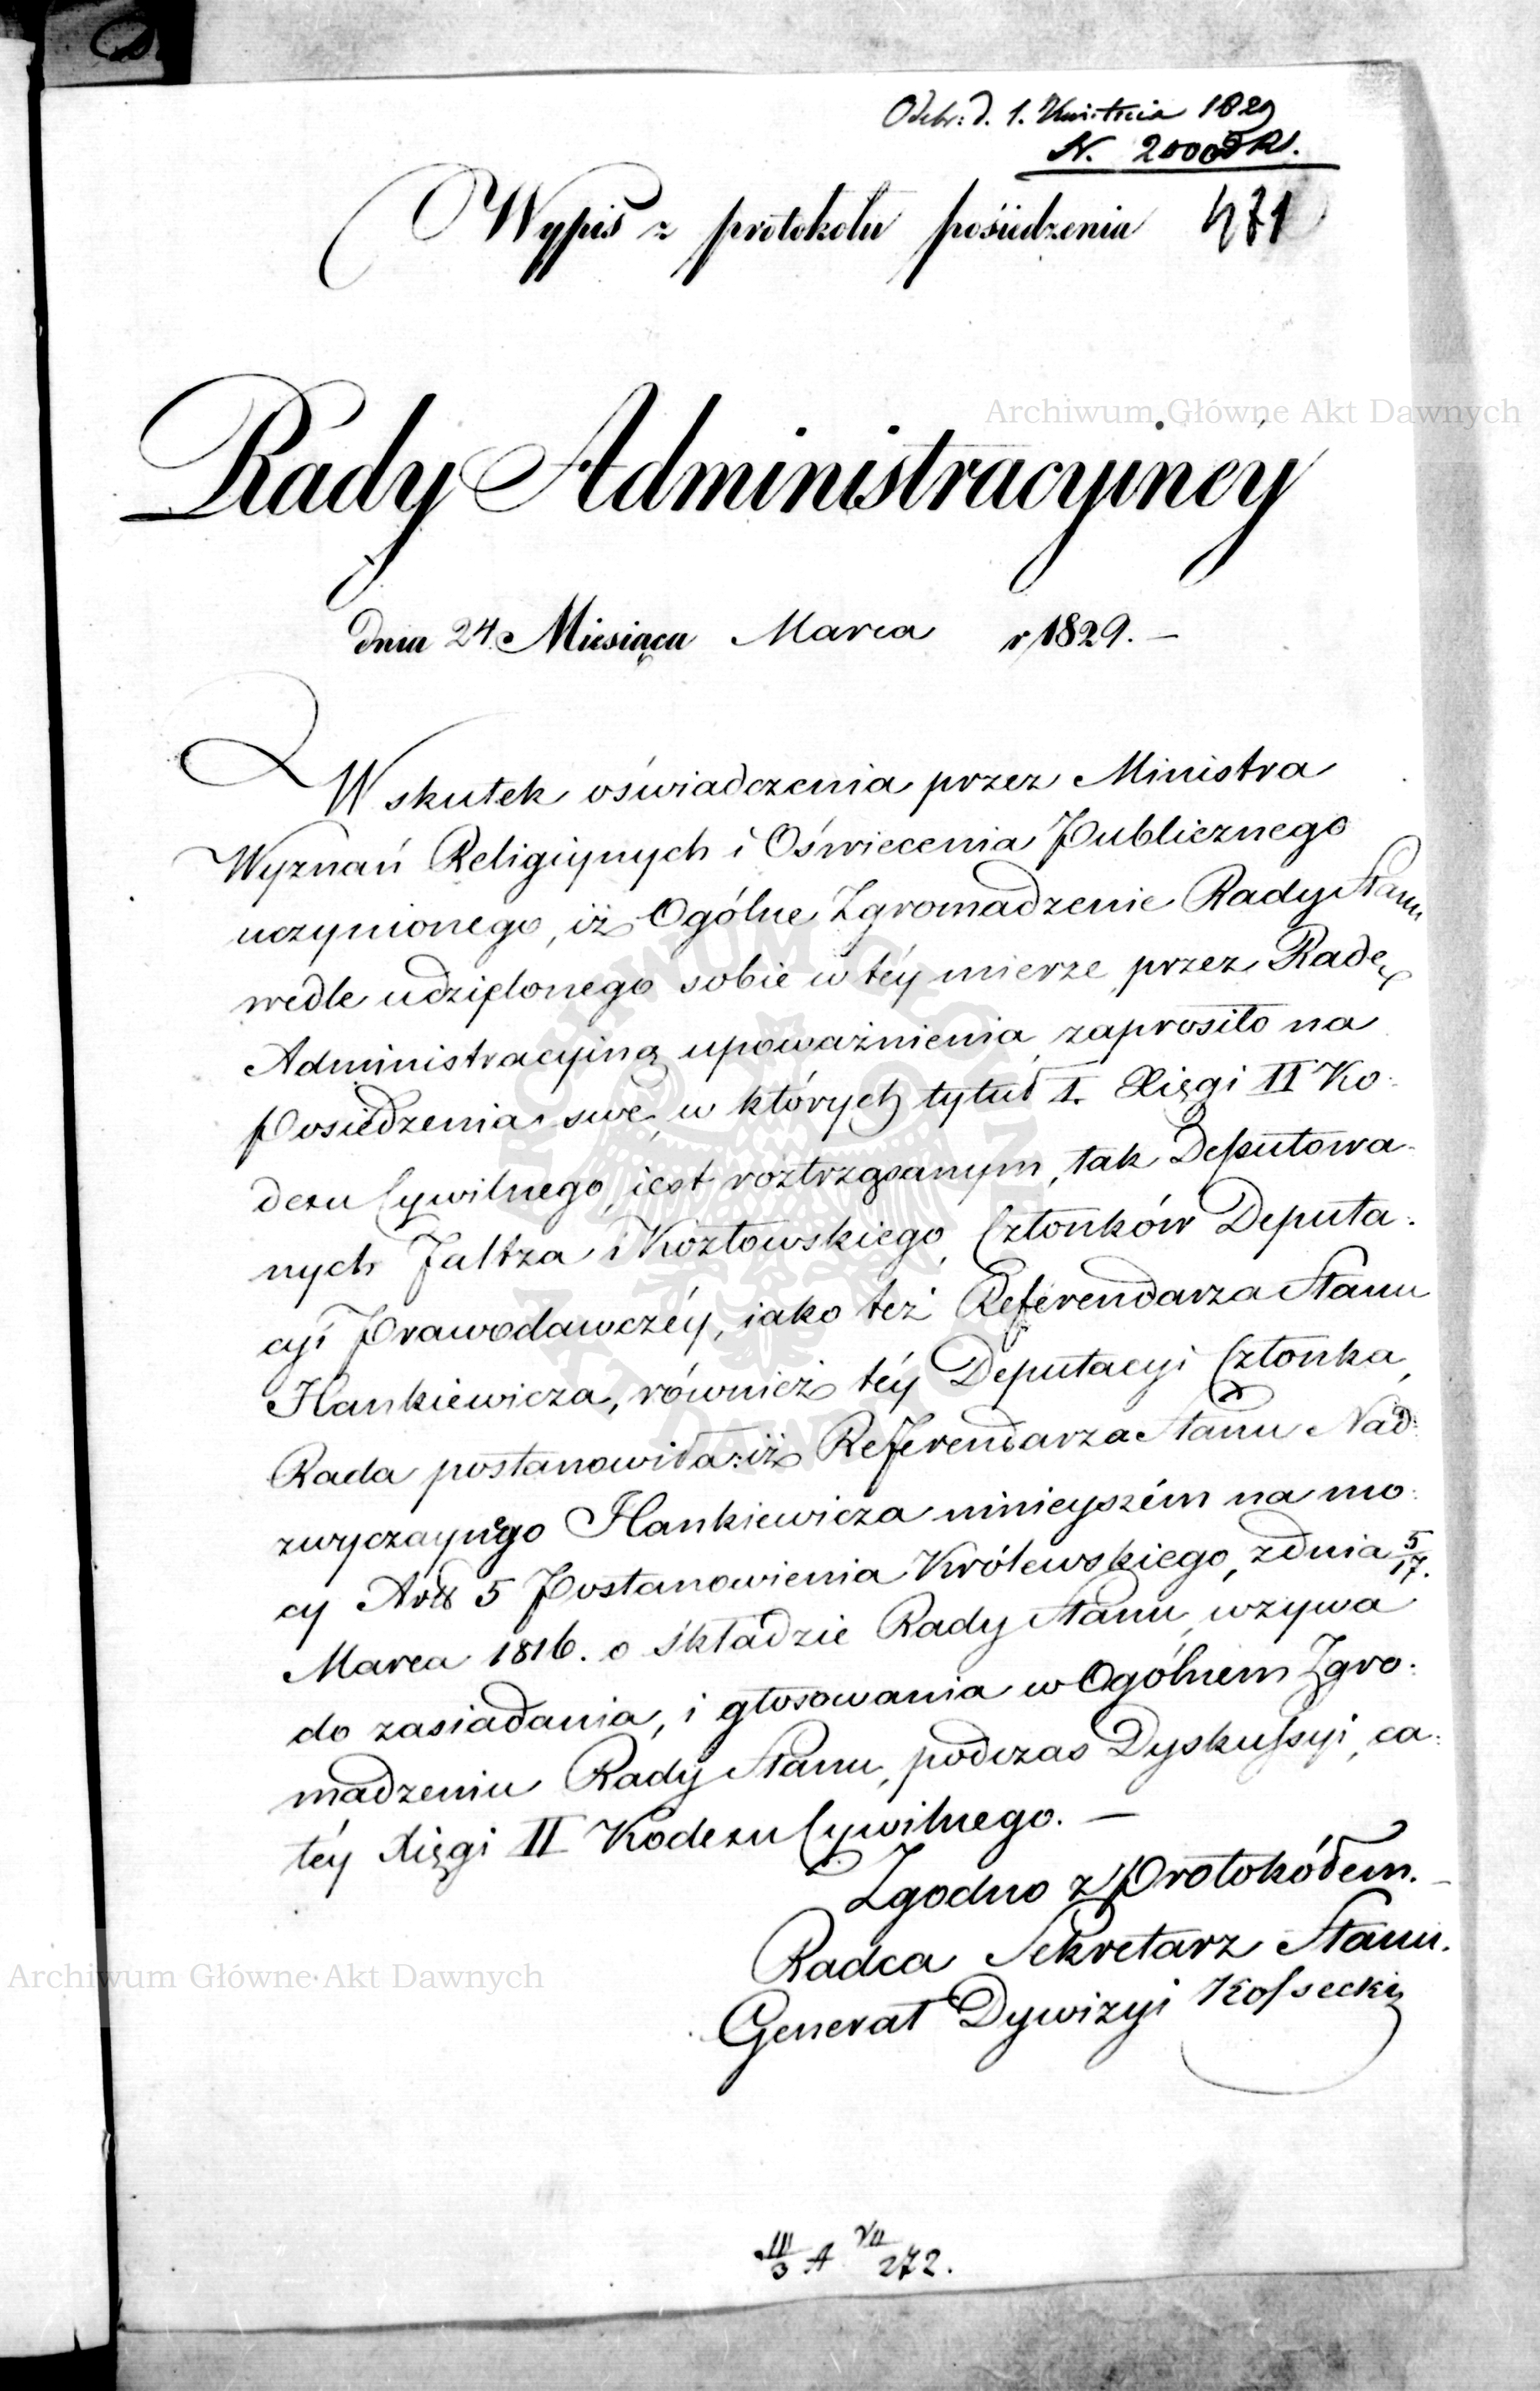 Odebr: d. 1. Kwietnia 1829
N. 2000
Wypis z protokołu posiedzenia 471
Rady Administracyiney
Archiwum Główne Akt Dawnych
dnia 24. Miesiąca Marca r 1829. —
W skutek oświadczenia przez Ministra
Wyznań Religiynych i Oświecenia Publicznego
uczynionego, iż Ogólne Zgromadzenie Rady Stanu
wedle udzielonego sobie w téy mierze przez Radę
Administracyiną upoważnienia zaprosiło na
Posiedzenia swe, w których tytuł I. Xięgi II Ko-
dexu Cywilnego iest roztrząsanym, tak Deputowa-
nych Faltza i Kozłowskiego Członków Deputa-
cyi Prawodawczéy, iako też Referendarza Stanu
Hankiewicza, również téy Deputacyi Członka,
Rada postanowiła: iż Referendarza Stanu Nad-
zwyczaynego Hankiewicza ninieyszém na mo-
cy Art 5 Postanowienia Królewskiego, z dnia 5/17.
Marca 1816. o składzie Rady Stanu, wzywa
do zasiadania, i głosowania w Ogólnem Zgro-
madzeniu Rady Stanu, podczas Dyskussyi, ca-
téy Xięgi II Kodexu Cywilnego. —
Zgodno z Protokółem. —
Radca Sekretarz Stanu.
Archiwum Główne Akt Dawnych
Generał Dywizyi Kossecki
III/3 A VII/272.
ARCHIWUM GŁÓWNE AKT DAWNYCH